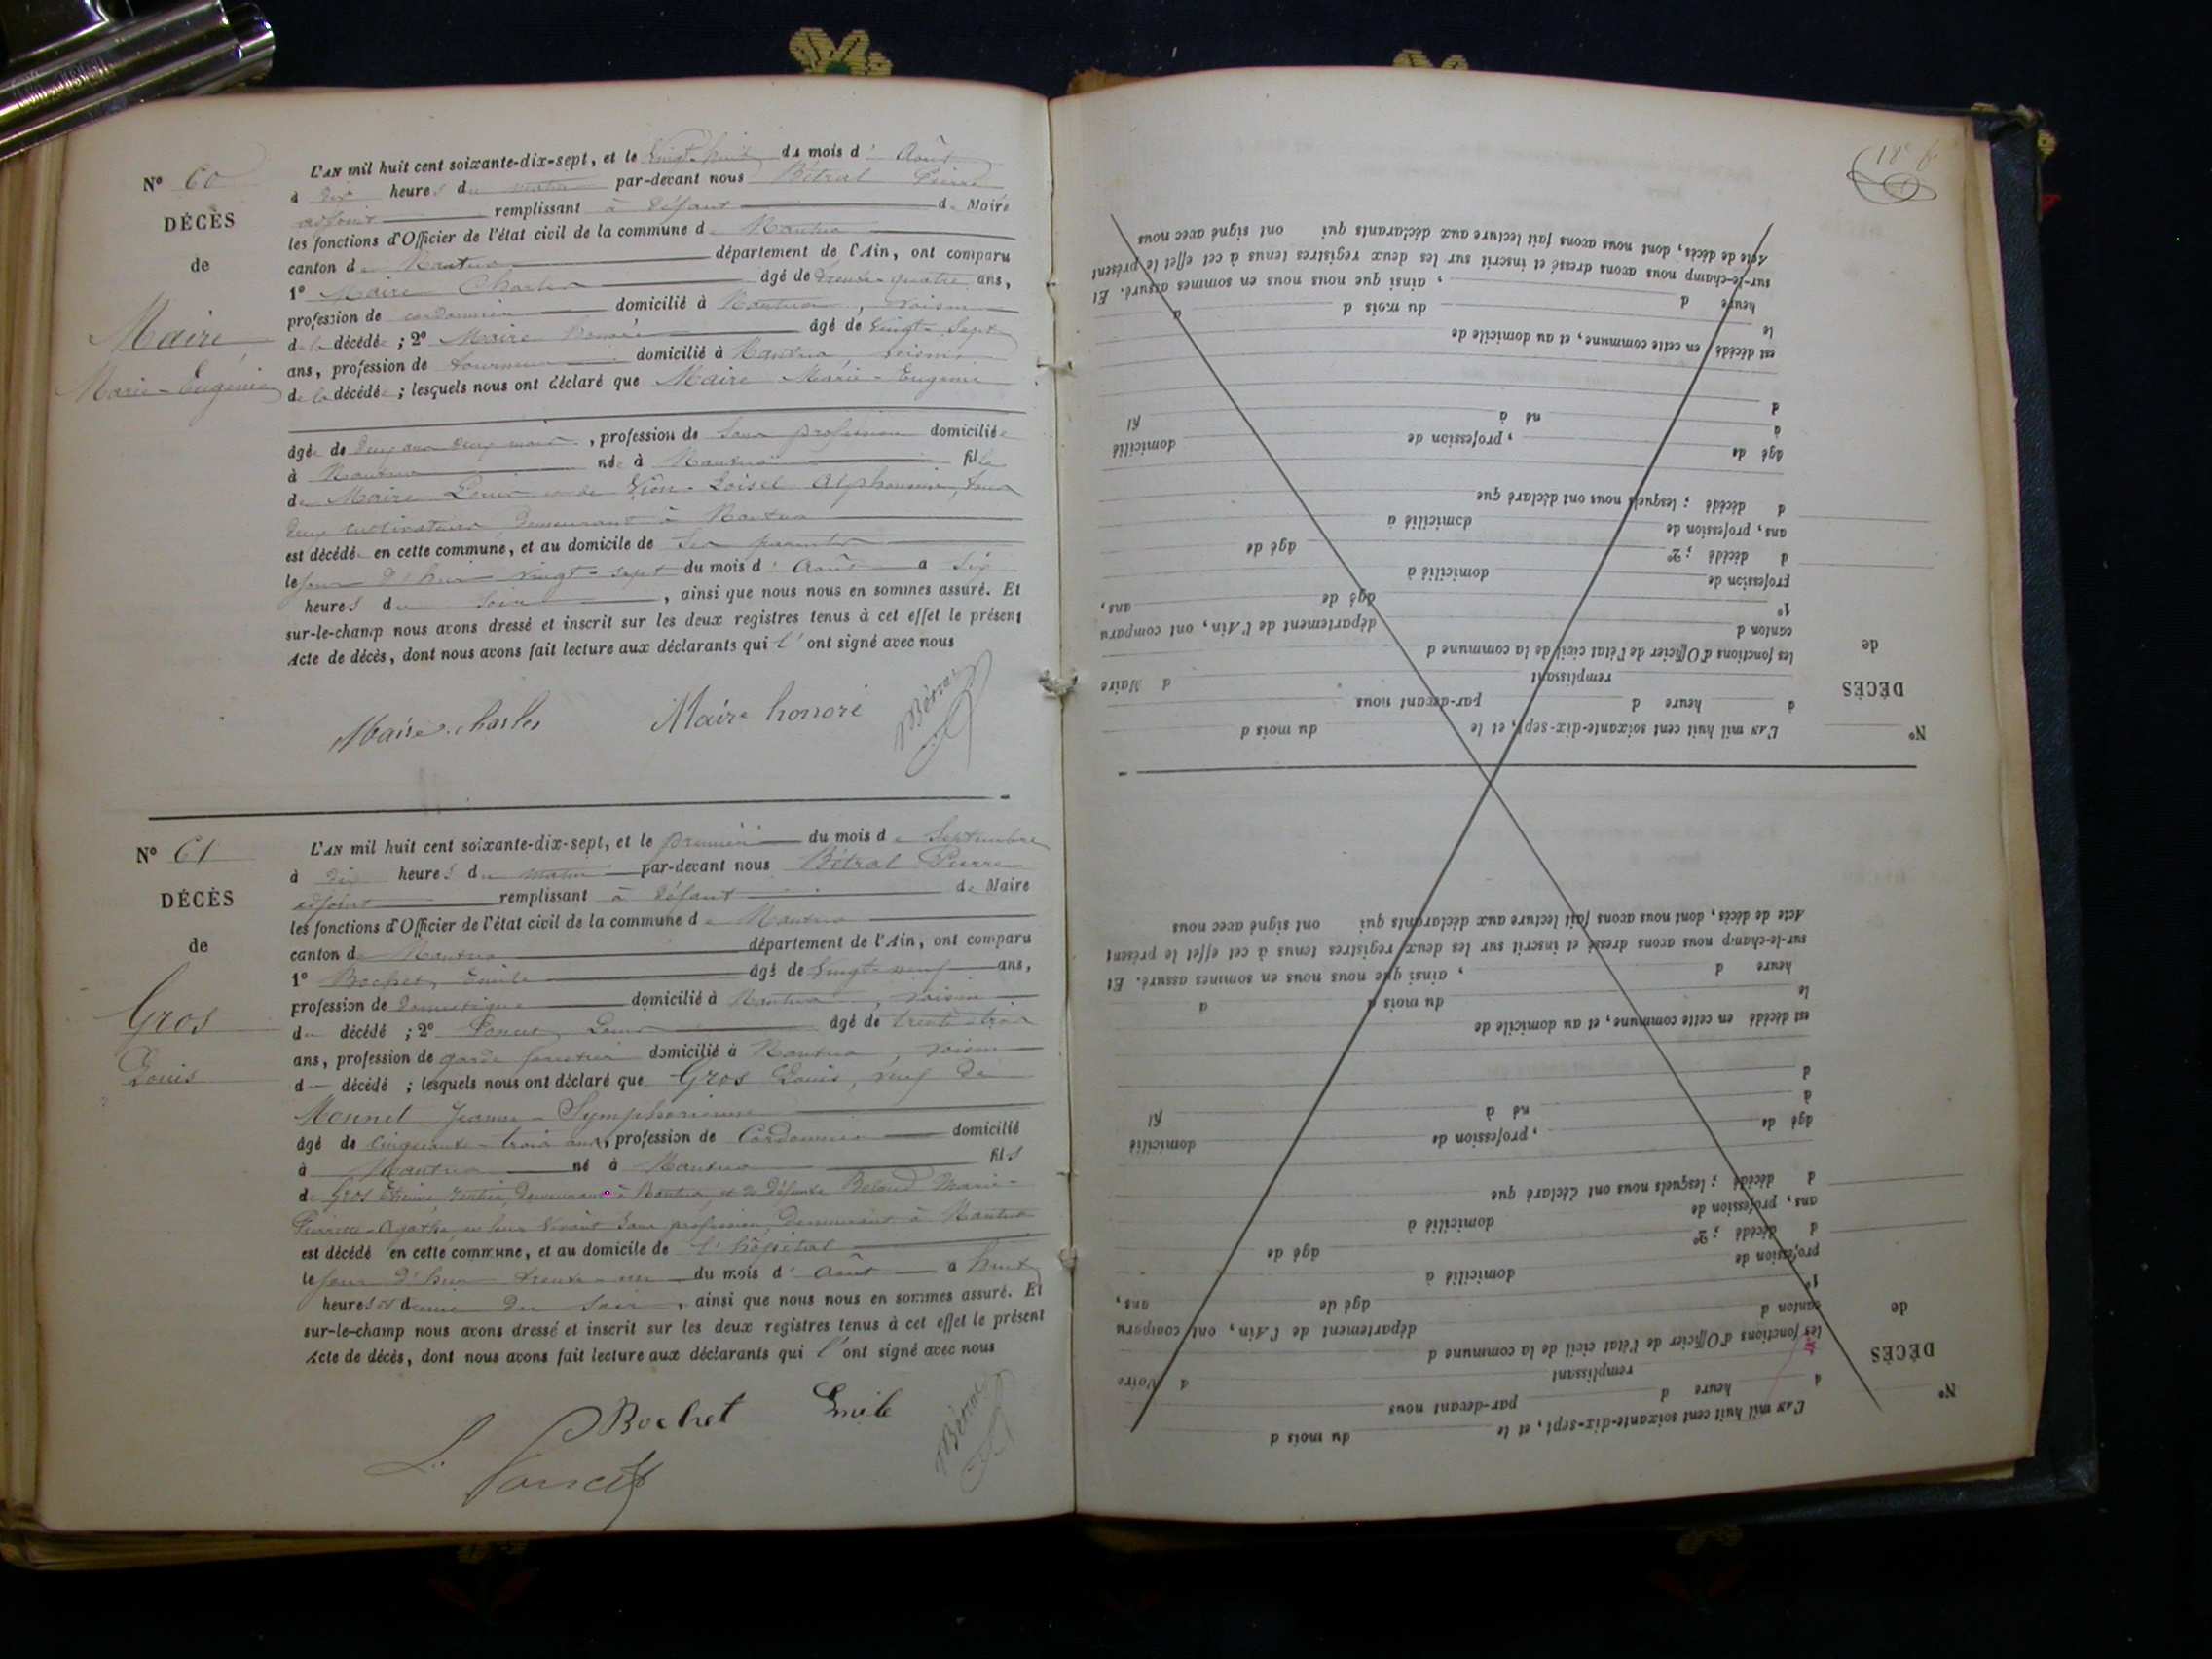 N° 60
DÉCÈS
de
Maire
Marie-Eugénie
L'AN mil huit cent soixante-dix-sept, et le vingt-huit du mois d'Août
à dix heures du matin par-devant nous Bétral Pierre
adjoint remplissant à défaut de Maire
les fonctions d'Officier de l'état civil de la commune de Nantua
canton de Nantua département de l'Ain, ont comparu
1° Maire Charles âgé de trente-quatre ans,
profession de cordonnier domicilié à Nantua, voisin
de la décédée ; 2° Maire Honoré âgé de vingt-sept
ans, profession de tourneur domicilié à Nantua, voisin
de la décédée ; lesquels nous ont déclaré que Maire Marie-Eugénie
âgée de deux ans deux mois, profession de sans profession domiciliée
à Nantua née à Nantua fille
de Maire Louis et de Loisel Alphonsine, tous
deux cultivateurs demeurant à Nantua
est décédée en cette commune, et au domicile de ses parents
le jour d'hier vingt-sept du mois d'Août à six
heures du soir, ainsi que nous nous en sommes assuré. Et
sur-le-champ nous avons dressé et inscrit sur les deux registres tenus à cet effet le présent
Acte de décès, dont nous avons fait lecture aux déclarants qui l'ont signé avec nous
Maire charles Maire honoré Bétral
N° 61
DÉCÈS
de
Gros
Louis
L'AN mil huit cent soixante-dix-sept, et le premier du mois de Septembre
à dix heures du matin par-devant nous Bétral Pierre
adjoint remplissant à défaut de Maire
les fonctions d'Officier de l'état civil de la commune de Nantua
canton de Nantua département de l'Ain, ont comparu
1° Bochet Emile âgé de vingt-neuf ans,
profession de domestique domicilié à Nantua, voisin
du décédé ; 2° Poncet Louis âgé de trente-trois
ans, profession de garde forestier domicilié à Nantua, voisin
d décédé ; lesquels nous ont déclaré que Gros Louis, veuf de
Monnet Jeanne-Symphorienne
âgé de cinquante-trois ans, profession de Cordonnier domicilié
à Nantua né à Nantua fils
de Gros Etienne, rentier, demeurant à Nantua, et de défunte Beloud Marie-
Pierrine-Agathe, en son vivant sans profession, demeurant à Nantua
est décédé en cette commune, et au domicile de l'hôpital
le jour d'hier trente-un du mois d'Août à huit
heures et demie du soir, ainsi que nous nous en sommes assuré. Et
sur-le-champ nous avons dressé et inscrit sur les deux registres tenus à cet effet le présent
Acte de décès, dont nous avons fait lecture aux déclarants qui l'ont signé avec nous
Bochet Emile Bétral
L. Poncet
18e f
N°
DÉCÈS
de
L'AN mil huit cent soixante-dix-sept, et le du mois d
à heure d par-devant nous
remplissant d Maire
les fonctions d'Officier de l'état civil de la commune d
canton d département de l'Ain, ont comparu
1° âgé de ans,
profession de domicilié à
d décédé ; 2° âgé de
ans, profession de domicilié à
d décédé ; lesquels nous ont déclaré que
âgé de , profession de domicilié
à né à fil
d
est décédé en cette commune, et au domicile de
le du mois d à
heure d , ainsi que nous nous en sommes assuré. Et
sur-le-champ nous avons dressé et inscrit sur les deux registres tenus à cet effet le présent
Acte de décès, dont nous avons fait lecture aux déclarants qui ont signé avec nous
N°
DÉCÈS
de
L'AN mil huit cent soixante-dix-sept, et le du mois d
à heure d par-devant nous
remplissant d Maire
les fonctions d'Officier de l'état civil de la commune d
canton d département de l'Ain, ont comparu
1° âgé de ans,
profession de domicilié à
d décédé ; 2° âgé de
ans, profession de domicilié à
d décédé ; lesquels nous ont déclaré que
âgé de , profession de domicilié
à né à fil
d
est décédé en cette commune, et au domicile de
le du mois d à
heure d , ainsi que nous nous en sommes assuré. Et
sur-le-champ nous avons dressé et inscrit sur les deux registres tenus à cet effet le présent
Acte de décès, dont nous avons fait lecture aux déclarants qui ont signé avec nous